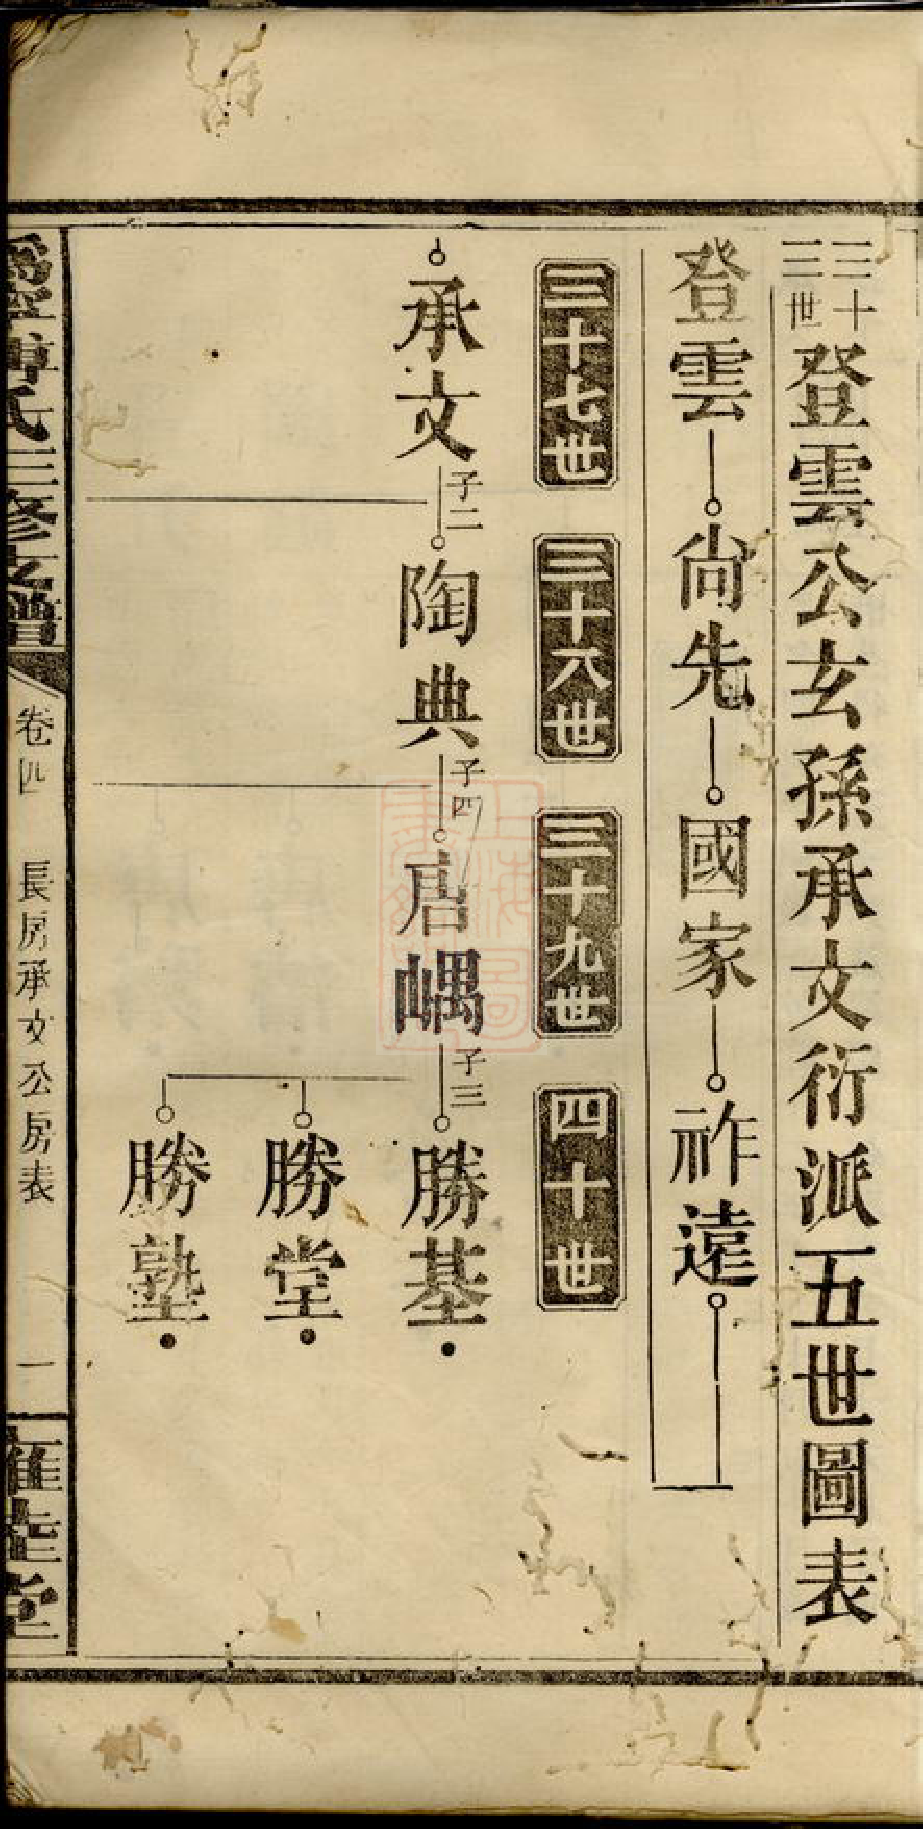 三十三世登雲公玄孫承文衍派五世圖表
登雲尚先國家祚遠
三十七世 三十六世 三十九世 四十世
承文子二陶典子四启嵎子三勝基
勝堂
勝塾
氏三修支譜 卷四 長房承文公房表 一 堂